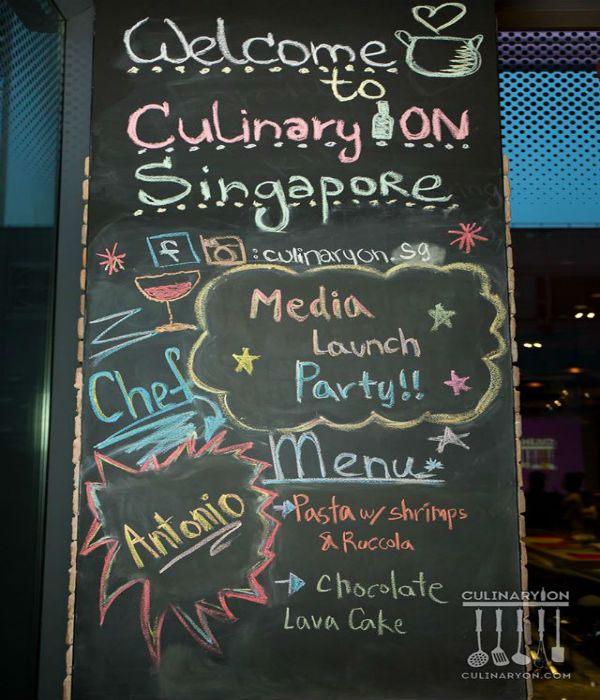 Welcome
to
Culinary ON
Singapore
f :culinaryon.sg
Media
Launch
Party!!
Chef
Antonio
Menu
Pasta w/ shrimps
& Ruccola
Chocolate
Lava Cake
CULINARY ON
CULINARYON.COM